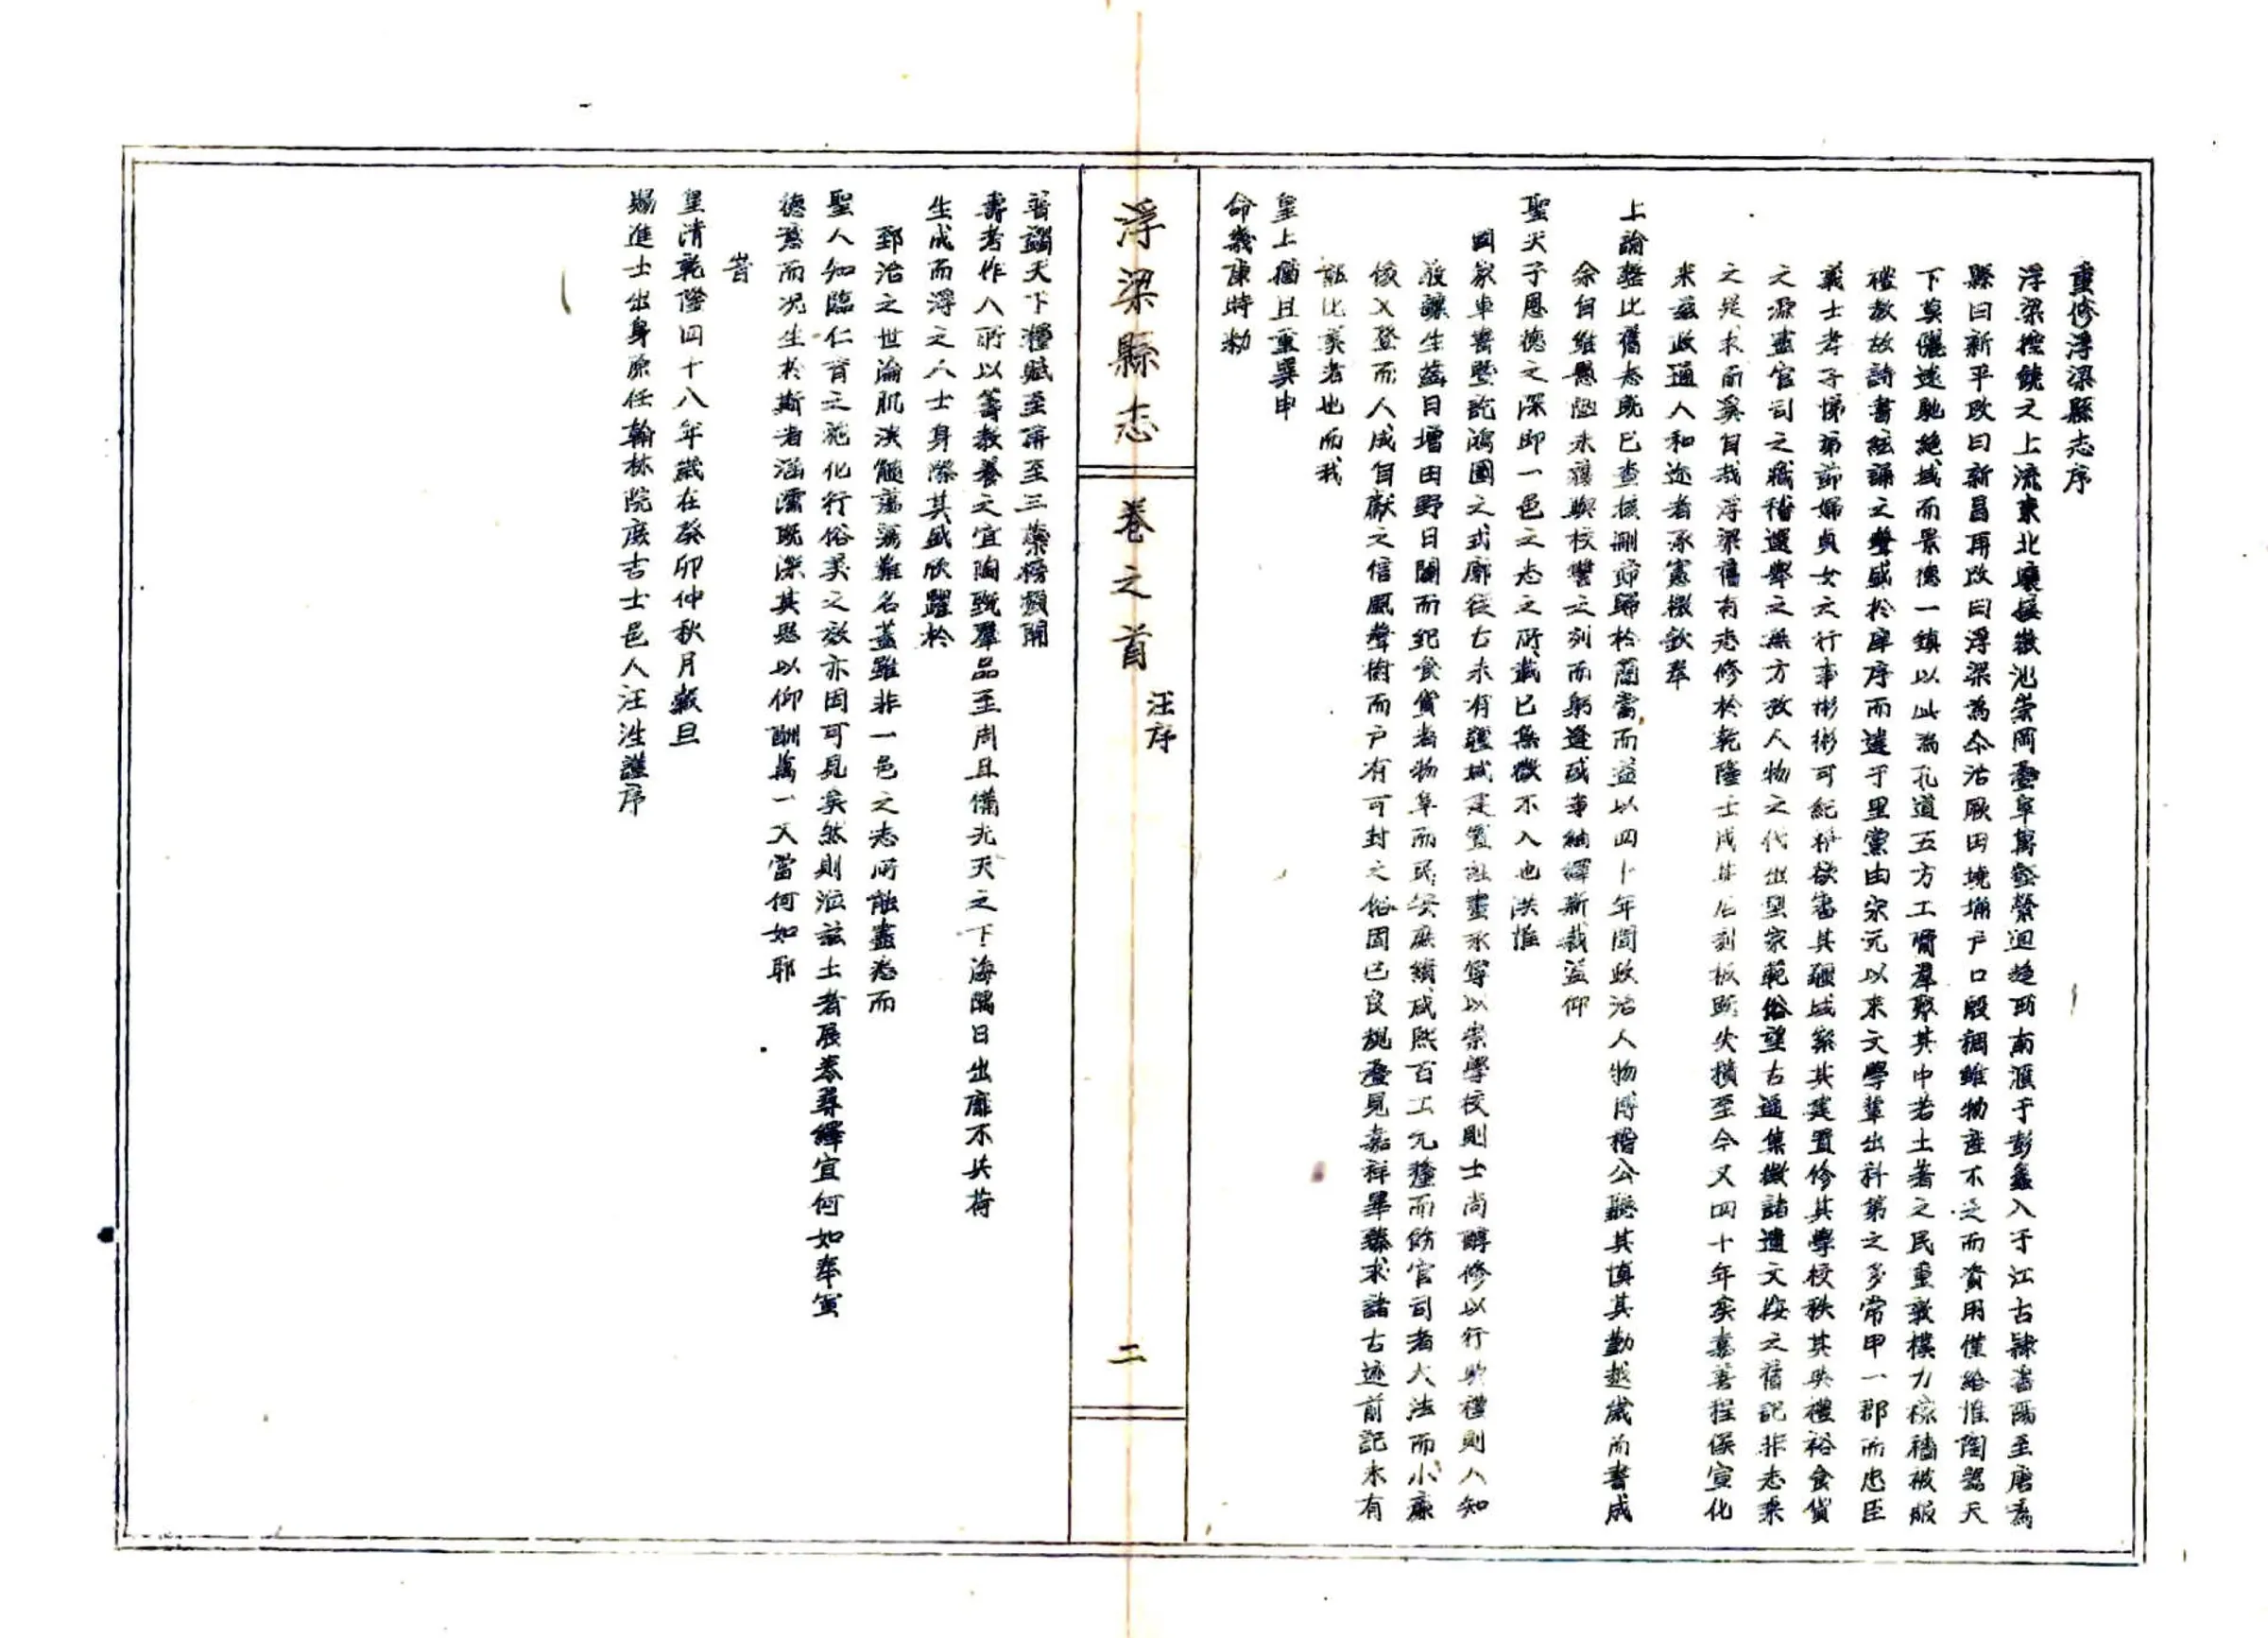 重修浮梁縣志序
浮梁控饒之上流東北壤接徽池崇岡叠阜萬壑縈迴趋西南滙于彭蠡入于江古隷畨陽至唐為
縣曰新平改曰新昌再改曰浮梁為今治厥田墝埆户口殷稠雖物產不乏而資用僅給惟陶器天
下莫儷遠馳絕域而景德一鎮以此為孔道五方工賈羣聚其中若土著之民重敦樸力稼穡被服
禮教故詩書絃誦之聲盛於庠序而達于里黨由宋元以來文學輩出科第之多常甲一郡而忠臣
義士孝子悌弟節婦貞女之行事彬彬可紀矜欲審其疆域察其建置修其學校秩其典禮裕食貨
之源盡官司之職稽選舉之無方攷人物之代出堅家範俗望古通集徵諸遺文按之舊記非志乘
之是求而奚自哉浮梁舊有志修於乾隆壬戌其后剞板既失積至今又四十年矣嘉善程侯宣化
来茲政通人和迩者承憲檄欽奉
上諭整比舊志既已查核刪節歸於簡當而益以四十年間政治人物博稽公聽其慎其勤越歲而書成
余自維愚陋未獲與校讐之列而躬逢盛事紬繹新裁益仰
聖天子恩德之深即一邑之志之所載已無微不入也洪惟
國家車書墍訖鴻圖之式廓從古未有疆域建置社畫承寧以崇學校則士尚醇修以行典禮則人知
敬讓生齒日增田野日闢而紀食貨者物阜而民安庶績咸熙百工允釐而飭官司者大法而小廉
俊乂登而人成自獻之信風聲樹而户有可封之俗固已良規叠見嘉祥畢臻求諸古迹前記未有
甑比美者也而我
皇上猶且重巽申
命幾康時勅
普蠲天下糧賦至再至三蘂榜頻開
壽考作人所以籌教養之宜陶甄羣品至周且備光天之下海隅日出靡不共荷
生成而浮之人士身際其盛欣躍於
郅治之世淪肌浹髓蕩蕩難名蓋雖非一邑之志所能盡志而
聖人知臨仁育之施化行俗美之效亦因可見矣然則涖兹土者展卷尋繹宜何如奉宣
德意而况生於斯者涵濡既深其思以仰酬萬一又當何如耶
旹
皇清乾隆四十八年歲在癸卯仲秋月穀旦
賜進士出身原任翰林院庶吉士邑人汪泩謹序
浮梁縣志
卷之首
汪序
二